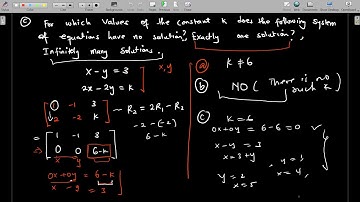 Ⓒ For which values of the constant k does the following system
of equations have no solution? Exactly one solution?,
Infinitely many solutions.
x - y = 3
2x - 2y = k
x, y
1 -1 3
2 -2 k
~ R2 = 2R1 - R2
-2 - (-2)
6 - k
⇒
1 -1 3
0 0 6-k
x y
0x + 0y = 6 - k
x - y = 3
ⓐ k ≠ 6
ⓑ NO ( There is no such k )
ⓒ k = 6
0x + 0y = 6 - 6 = 0 ✓
x - y = 3
x = 3 + y
y = 1
x = 4,
y = 2
x = 5